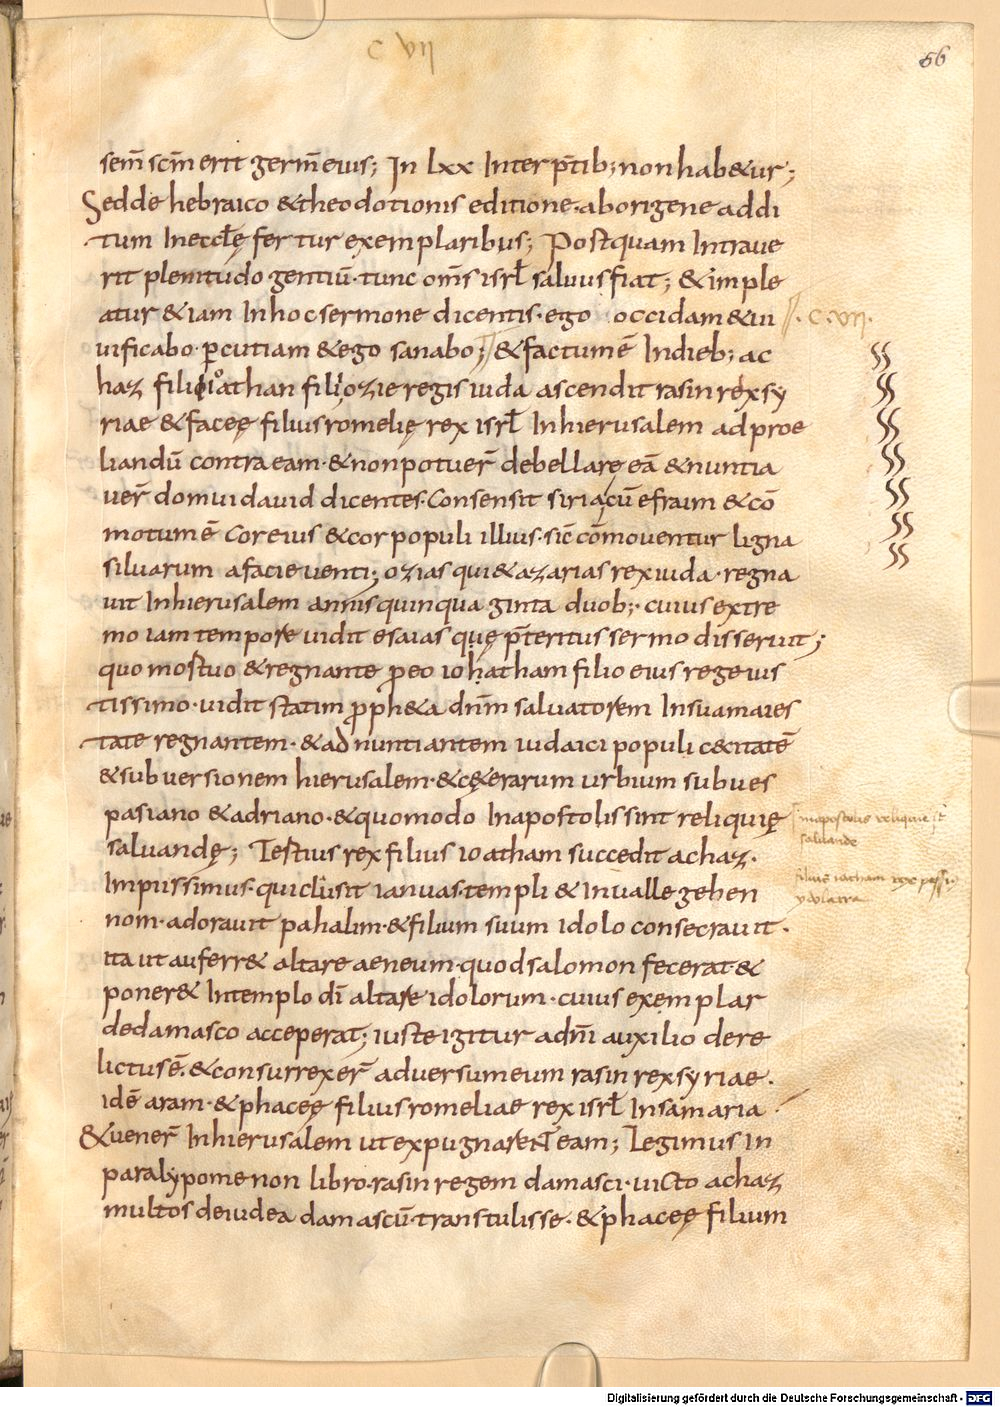 C VII
56
sem̄ scm̄ erit germ̄ eius; In lxx Interp̄tib; non hab&ur;
Sed de hebraico & theodotionis editione · ab origene addi
tum In eccl̄ę fertur exemplaribus; Postquam Intraue
rit plenitudo gentiū · tunc om̄s isrl̄ saluus fiat; & imple
atur & iam In hoc sermone dicentis · ego occidam & ui
· C · VII ·
uificabo · ꝑcutiam & ego sanabo; & factum ē In dieb; ac
haz filii ioathan filii ozie regis iuda ascendit rasin rex sy
riae & faceę filius romelię rex isrl̄ In hierusalem ad proe
liandū contra eam · & non potuer̄ debellare eā & nuntia
uer̄ domui dauid dicentes · Consensit siria cū efraim & cō
motum ē cor eius & cor populi illius · sic̄ cōmouentur ligna
siluarum a facie uenti; ozias qui & azarias rex iuda · regna
uit In hierusalem annis quinquaginta duob; · cuius extre
mo iam tempore uidit esaias quę p̄teritus sermo disseruit;
quo mostuo & regnante ꝓ eo iohatham filio eius rege ius
tissimo · uidit statim ꝓph&a dnm̄ saluatorem In sua maies
tate regnantem · & adnuntiantem iudaici populi cęcitatē
& subuersionem hierusalem · & cę&erarum urbium sub ues
pasiano & adriano · & quomodo In apostolis sint reliquię
inapostolis reliquie st̄
saluande
saluandę; Tertius rex filius ioatham succedit achaz ·
filius iotham rex pessi
ydolatra
Impiissimus · qui clusit ianuas templi & In ualle gehen
nom · adorauit pahalim · & filium suum idolo consecrauit ·
ita ut auferr& altare aeneum · quod salomon fecerat · &
poner& In templo dī altare idolorum · cuius exemplar
de damasco acceperat; iuste igitur a dn̄i auxilio dere
lictus ē · & consurrexer̄ aduersum eum rasin rex syriae ·
idē aram · & phaceę filius romeliae rex isrl̄ In samaria
& uener̄ In hierusalem ut expugnarent eam; Legimus in
paralypomenon libro · rasin regem damasci · uicto achaz
multos de iudea damascū transtulisse · & phaceę filium
Digitalisierung gefördert durch die Deutsche Forschungsgemeinschaft - DFG